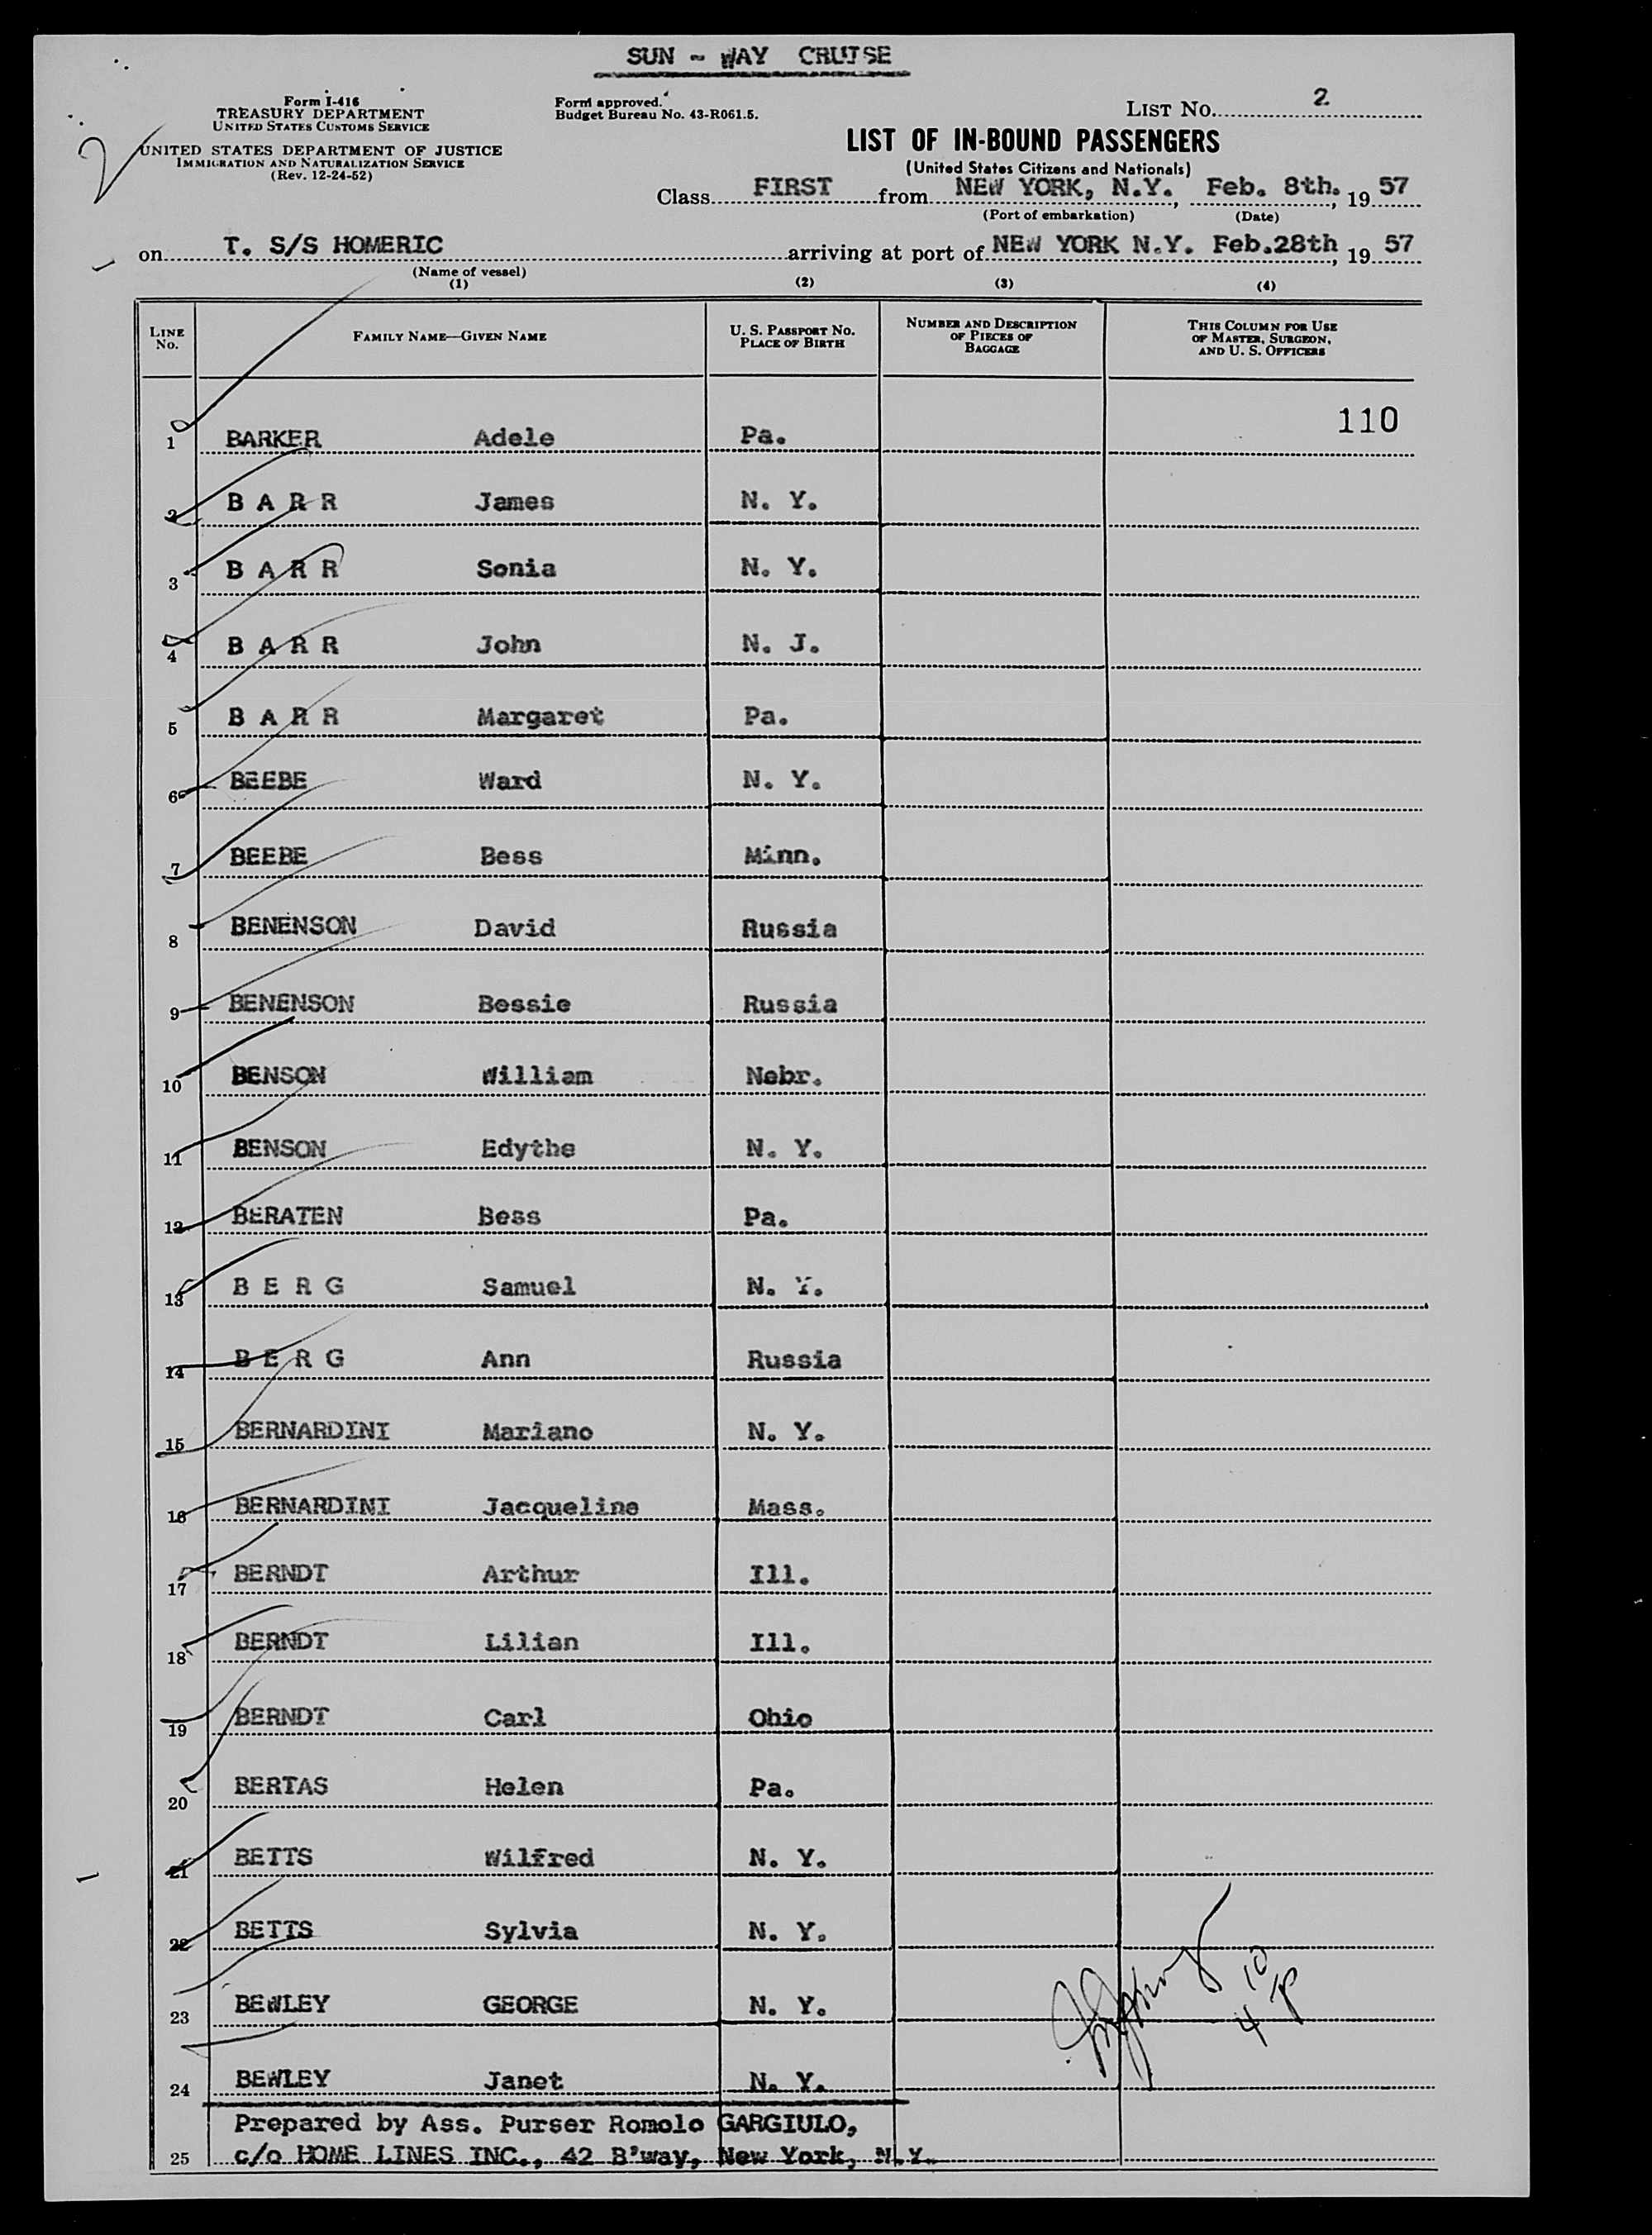 SUN - WAY CRUISE
Form I-416
TREASURY DEPARTMENT
UNITED STATES CUSTOMS SERVICE
UNITED STATES DEPARTMENT OF JUSTICE
IMMIGRATION AND NATURALIZATION SERVICE
(Rev. 12-24-52)
Form approved.
Budget Bureau No. 43-R061.5.
LIST NO. 2
LIST OF IN-BOUND PASSENGERS
(United States Citizens and Nationals)
Class FIRST from NEW YORK, N.Y., Feb. 8th., 19 57
(Port of embarkation) (Date)
on T. S/S HOMERIC arriving at port of NEW YORK N.Y. Feb.28th, 19 57
(Name of vessel)
(1) (2) (3) (4)
LINE NO. FAMILY NAME—GIVEN NAME U. S. PASSPORT NO. PLACE OF BIRTH NUMBER AND DESCRIPTION OF PIECES OF BAGGAGE THIS COLUMN FOR USE OF MASTER, SURGEON, AND U. S. OFFICERS
1 BARKER Adele Pa. 110
2 B A R R James N. Y.
3 B A R R Sonia N. Y.
4 B A R R John N. J.
5 B A R R Margaret Pa.
6 BEEBE Ward N. Y.
7 BEEBE Bess Minn.
8 BENENSON David Russia
9 BENENSON Bessie Russia
10 BENSON William Nebr.
11 BENSON Edythe N. Y.
12 BERATEN Bess Pa.
13 B E R G Samuel N. Y.
14 B E R G Ann Russia
15 BERNARDINI Mariano N. Y.
16 BERNARDINI Jacqueline Mass.
17 BERNDT Arthur Ill.
18 BERNDT Lilian Ill.
19 BERNDT Carl Ohio
20 BERTAS Helen Pa.
21 BETTS Wilfred N. Y.
22 BETTS Sylvia N. Y.
23 BEWLEY GEORGE N. Y.
24 BEWLEY Janet N. Y.
Prepared by Ass. Purser Romolo GARGIULO,
25 c/o HOME LINES INC., 42 B'way, New York, N.Y.